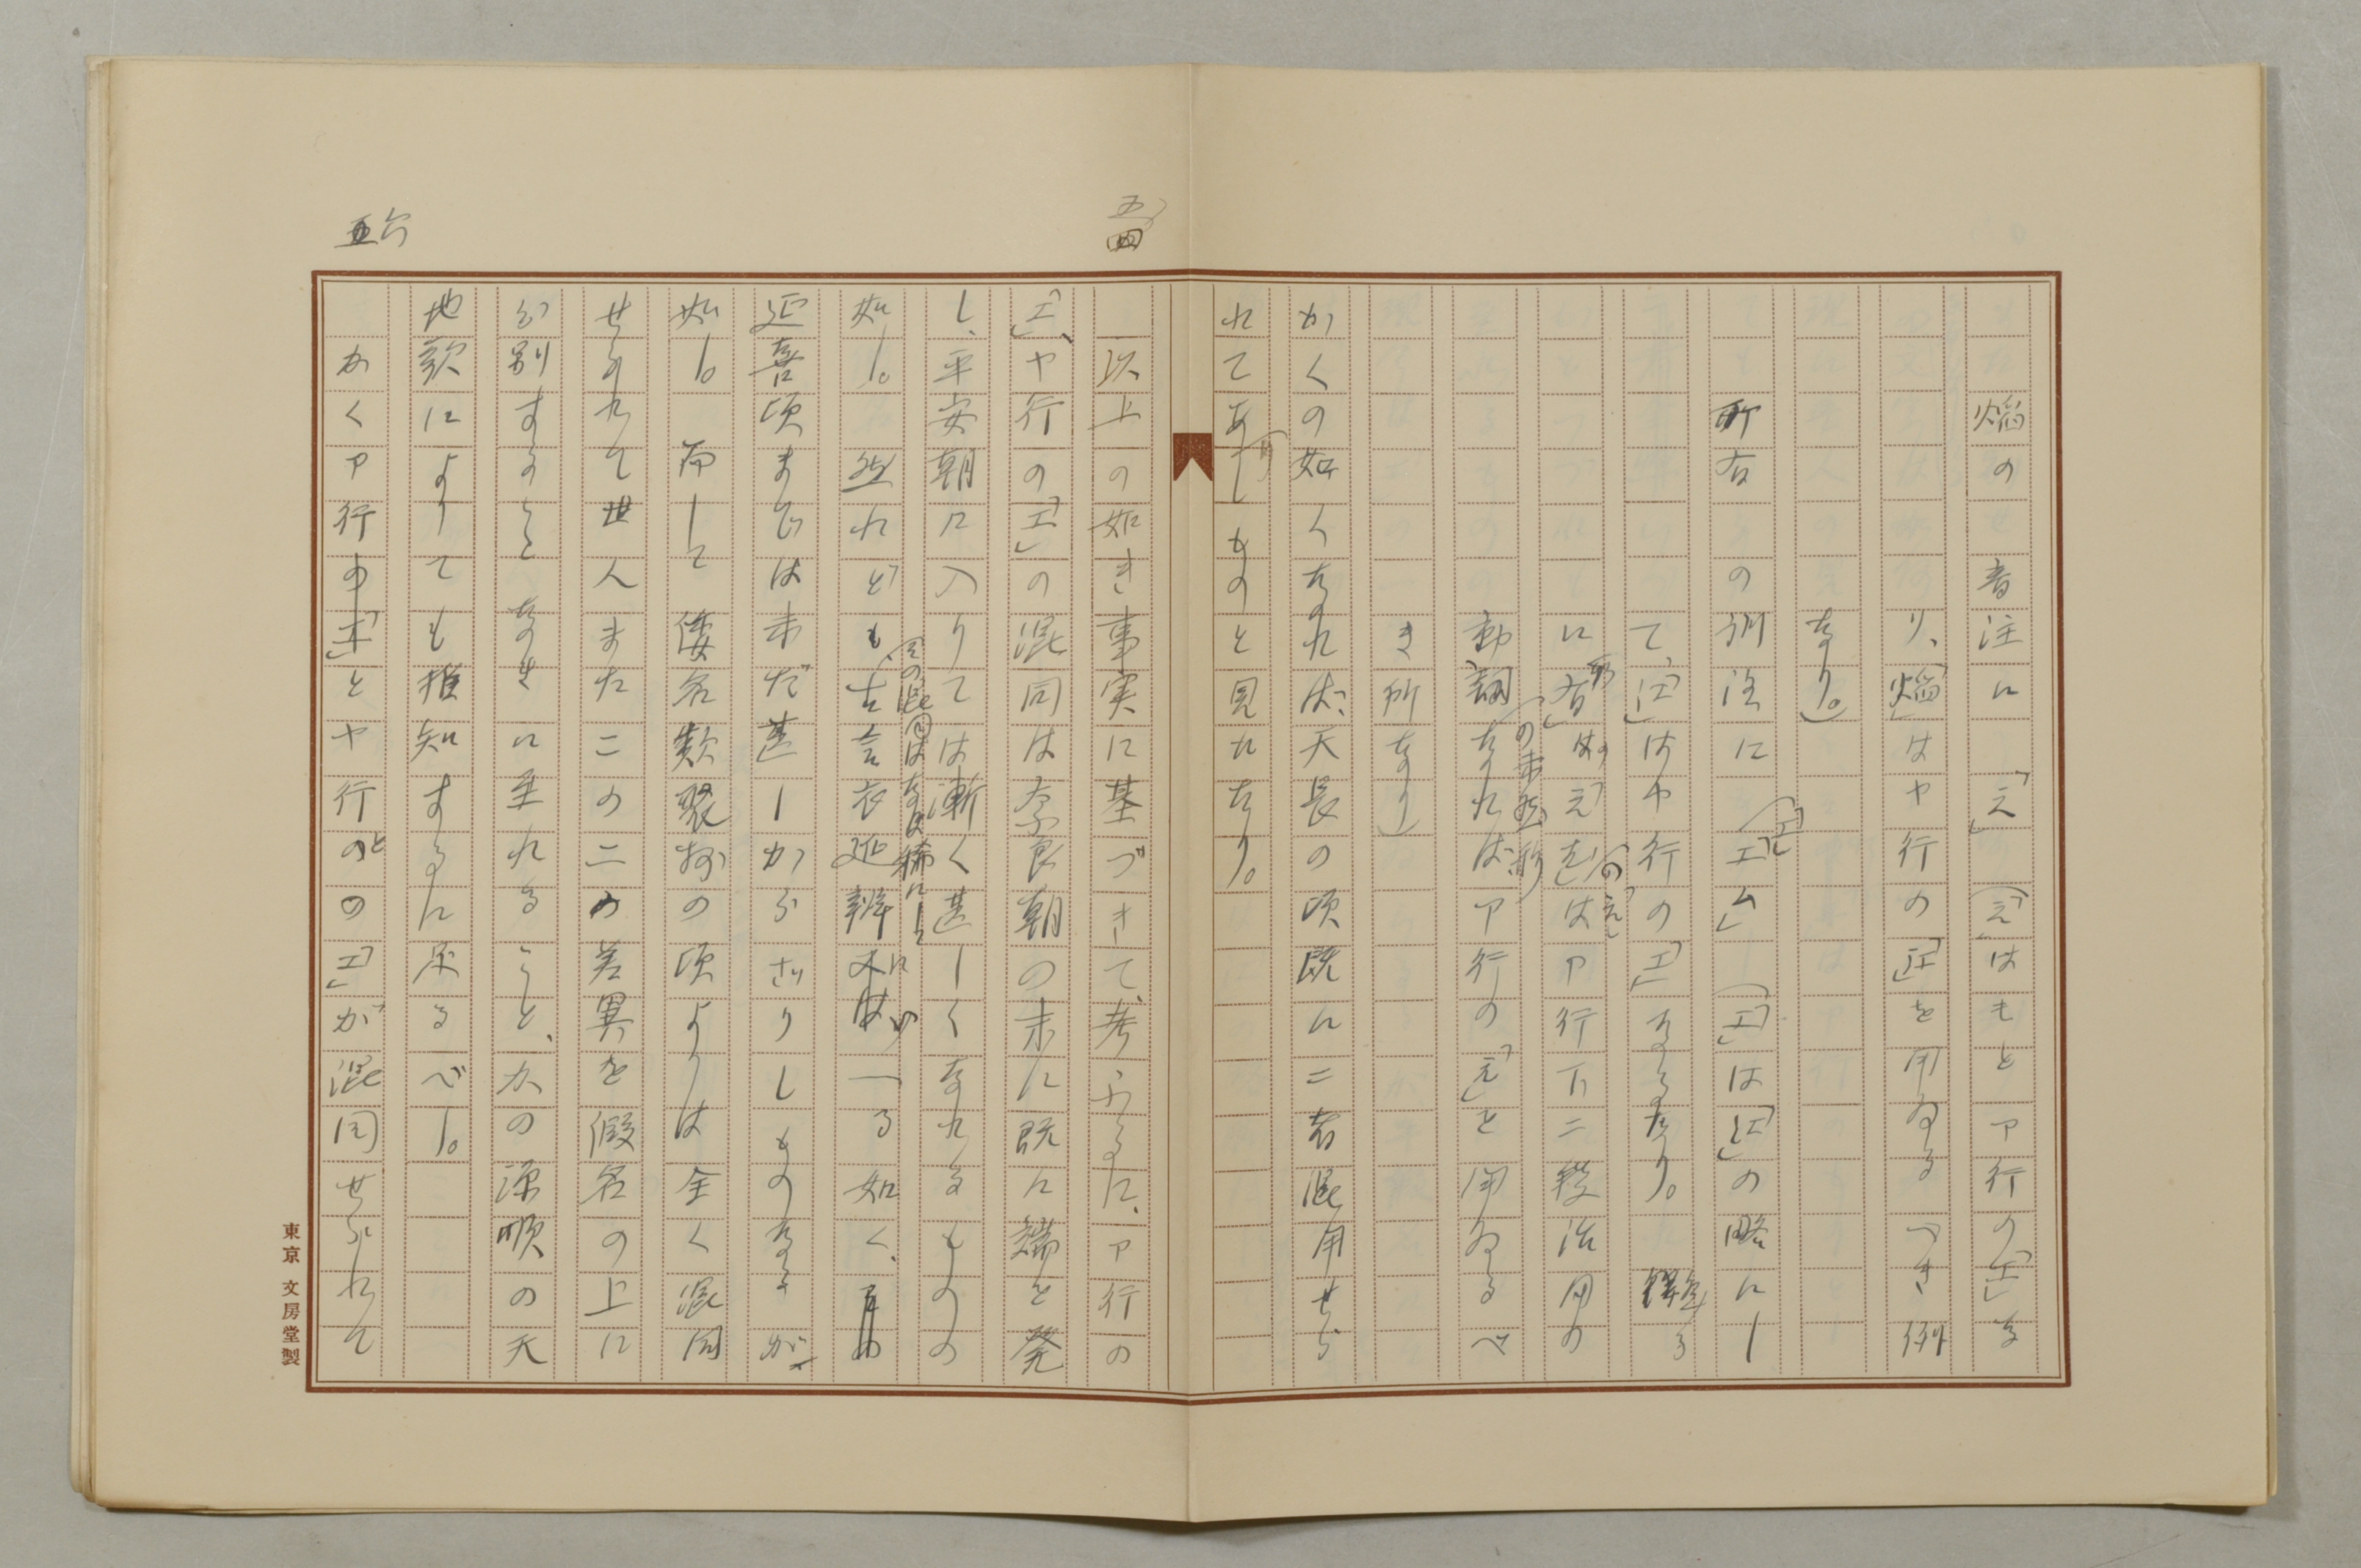 焔の音注に「え」(「え」はもとア行の「エ」な
り、「焔」はヤ行の「江」を用ゐるべき例
なり。)
所有の訓注に「エム」(「エ」は「江」の略にし
て、「江」はヤ行の「エ」なるなり。
に「有」は
動詞の未然形なればア行の「え」を用ゐるべ
き所なり)
かくの如くなれば、天長の頃既に二者混用せら
れてありしものと見れたり。
五
四
以上の如き事実に基づきて、考ふるに、ア行の
「エ」、ヤ行の「エ」の混同は奈良朝の末に既に端を発
し、平安朝に入りては漸く甚しくなれるものの
如し。然れども、古言衣延辨に
その混同はなほ稀にして
延喜頃までは未だ甚しからざりしものなるが
如し。而して倭名類聚抄の頃よりは全く混同
せられて世人またこの二の差異を假名の上に
分別することなきに至れること、かの源順の天
地歌によりても推知するに足るべし。
五六
かくア行の「エ」とヤ行のの「エ」が混同せられて
東京 文房堂製